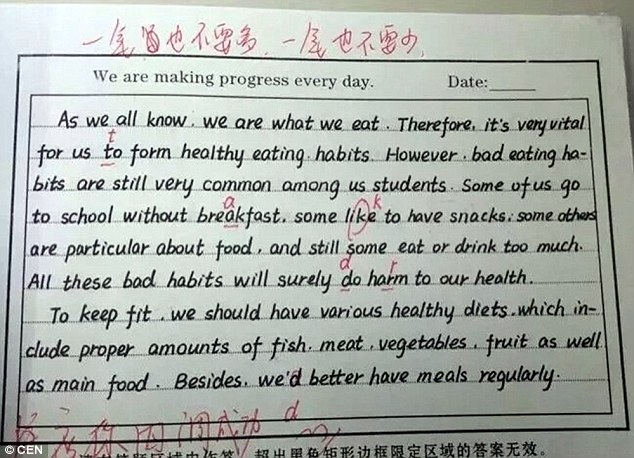 一 也不要多、一 也不要少
We are making progress every day. Date:
As we all know, we are what we eat. Therefore, it's very vital
t
for us to form healthy eating habits. However, bad eating ha-
bits are still very common among us students. Some of us go
a k
to school without breakfast, some like to have snacks, some others
are particular about food, and still some eat or drink too much.
d r
All these bad habits will surely do harm to our health.
To keep fit, we should have various healthy diets, which in-
clude proper amounts of fish, meat, vegetables, fruit as well
as main food. Besides, we'd better have meals regularly.
成功 d
超出黑色矩形边框限定区域的答案无效。
© CEN